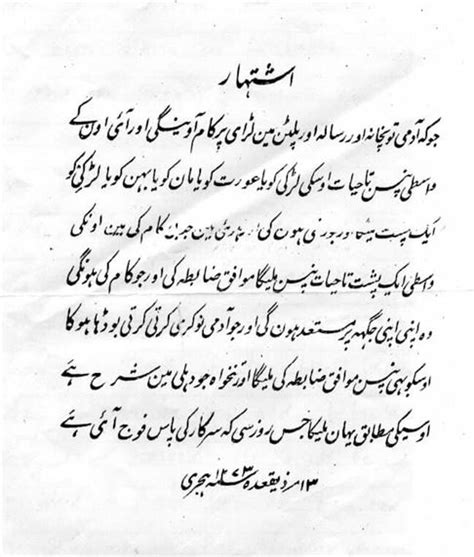 اشتہار
جو کہ آدمی توپخانہ اور رسالہ اور پلٹن مین لڑای پر کام آوینگی اور آئی اون کے
واسطی پنسن تاحیات اوسکی لڑکی کو یا عورت کو یا مان کو یا بہن کو یا لڑکی کو
ایک پست ہون کی کام کی ہین اونکی
واسطی ایک پشت تاحیات پنسن ملیگا موافق ضابطہ کی اور جو کام کی ہونگی
وہ اپنی اپنی جگہہ پر مستعد ہون گی اور جو آدمی نوکری کرتی کرتی بوڈہا ہوگا
اوسکو بہی پنسن موافق ضابطہ کی ملیگا اور تنخواہ جو دہلی مین شرح ہے
اوسیکی مطابق یہان ملیگا جس روز سی کہ سرکار کی پاس فوج آئی ہے
۱۳ ذیقعدہ سنہ ۱۲۷۳ ہجری